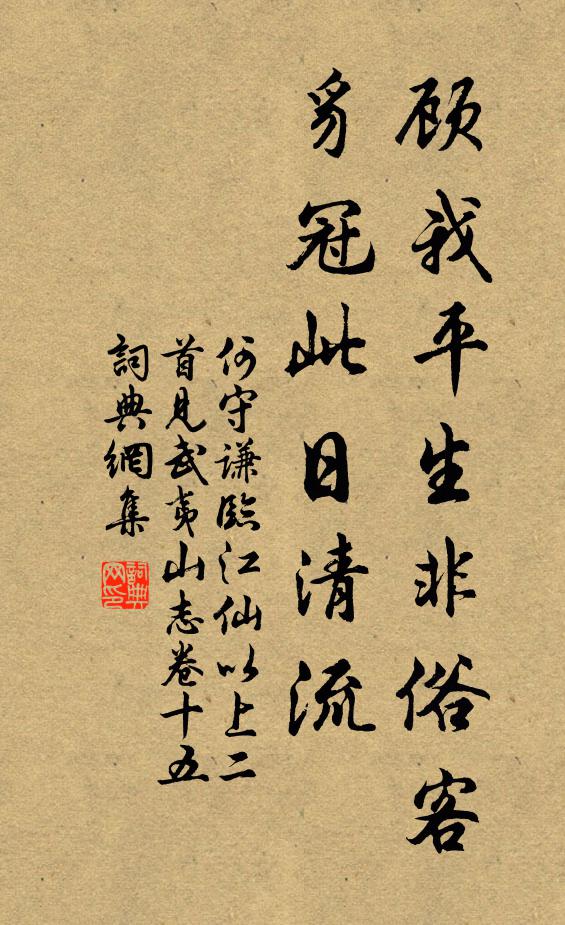 顾我平生非俗客
豸冠此日清流
何守谦臨江仙以上二
首見武夷山志卷十五
詞典網集
詞典网印